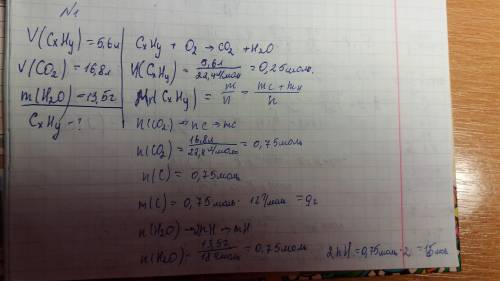 N1
V(CxHy)=5,6л
V(CO₂)=16,8л
m(H₂O)=13,5г
CxHy - ?
CxHy + O₂ → CO₂ + H₂O
n(CxHy) = 5,6л / 22,4 л/моль = 0,25 моль.
M(CxHy) = m/n = mc + mн / n
n(CO₂) → nc → mc
n(CO₂) = 16,8л / 22,4 л/моль = 0,75 моль
n(C) = 0,75 моль
m(C) = 0,75 моль · 12 г/моль = 9г
n(H₂O) → 2nH → mH
n(H₂O) - 13,5г / 18 г/моль = 0,75 моль
2nH = 0,75 моль · 2 =